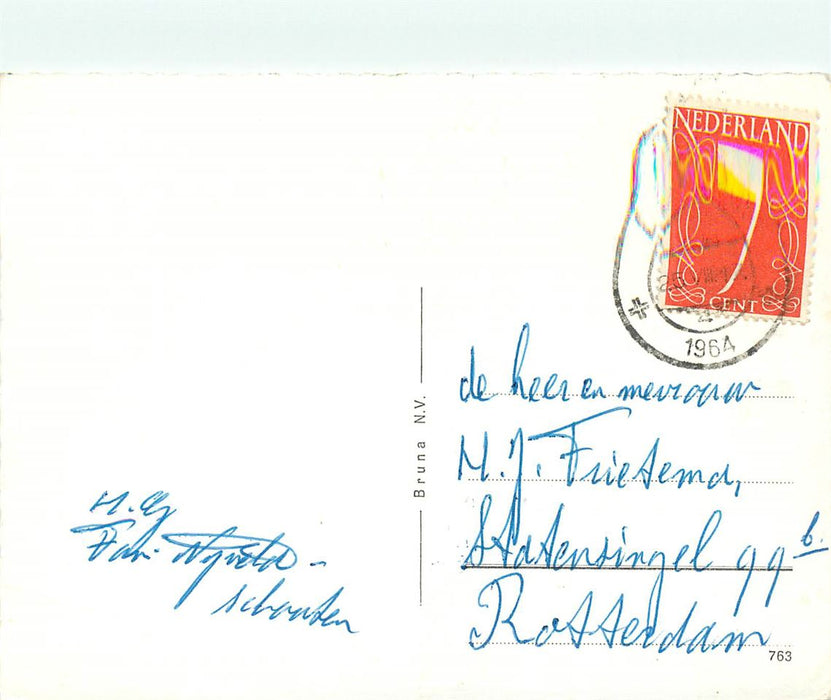 NEDERLAND
7
CENT
1964
de heer en mevrouw
M.J. Frietema,
Statensingel 99 b.
Rotterdam
Bruna N.V.
H.G.
Fam. Nijveld -
Schouten
763